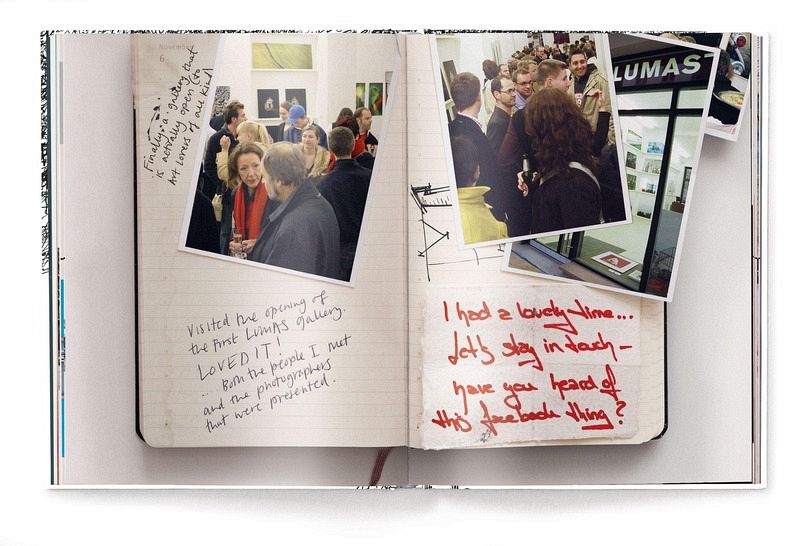 November
6
Finally, a gallery that
is actually open to
Art lovers of all kind
Visited the opening of
the first LUMAS gallery.
LOVED IT!
... Both the people I met
and the photographers
that were presented.
LUMAS
I had a lovely time...
Let's stay in touch –
have you heard of
this facebook thing?